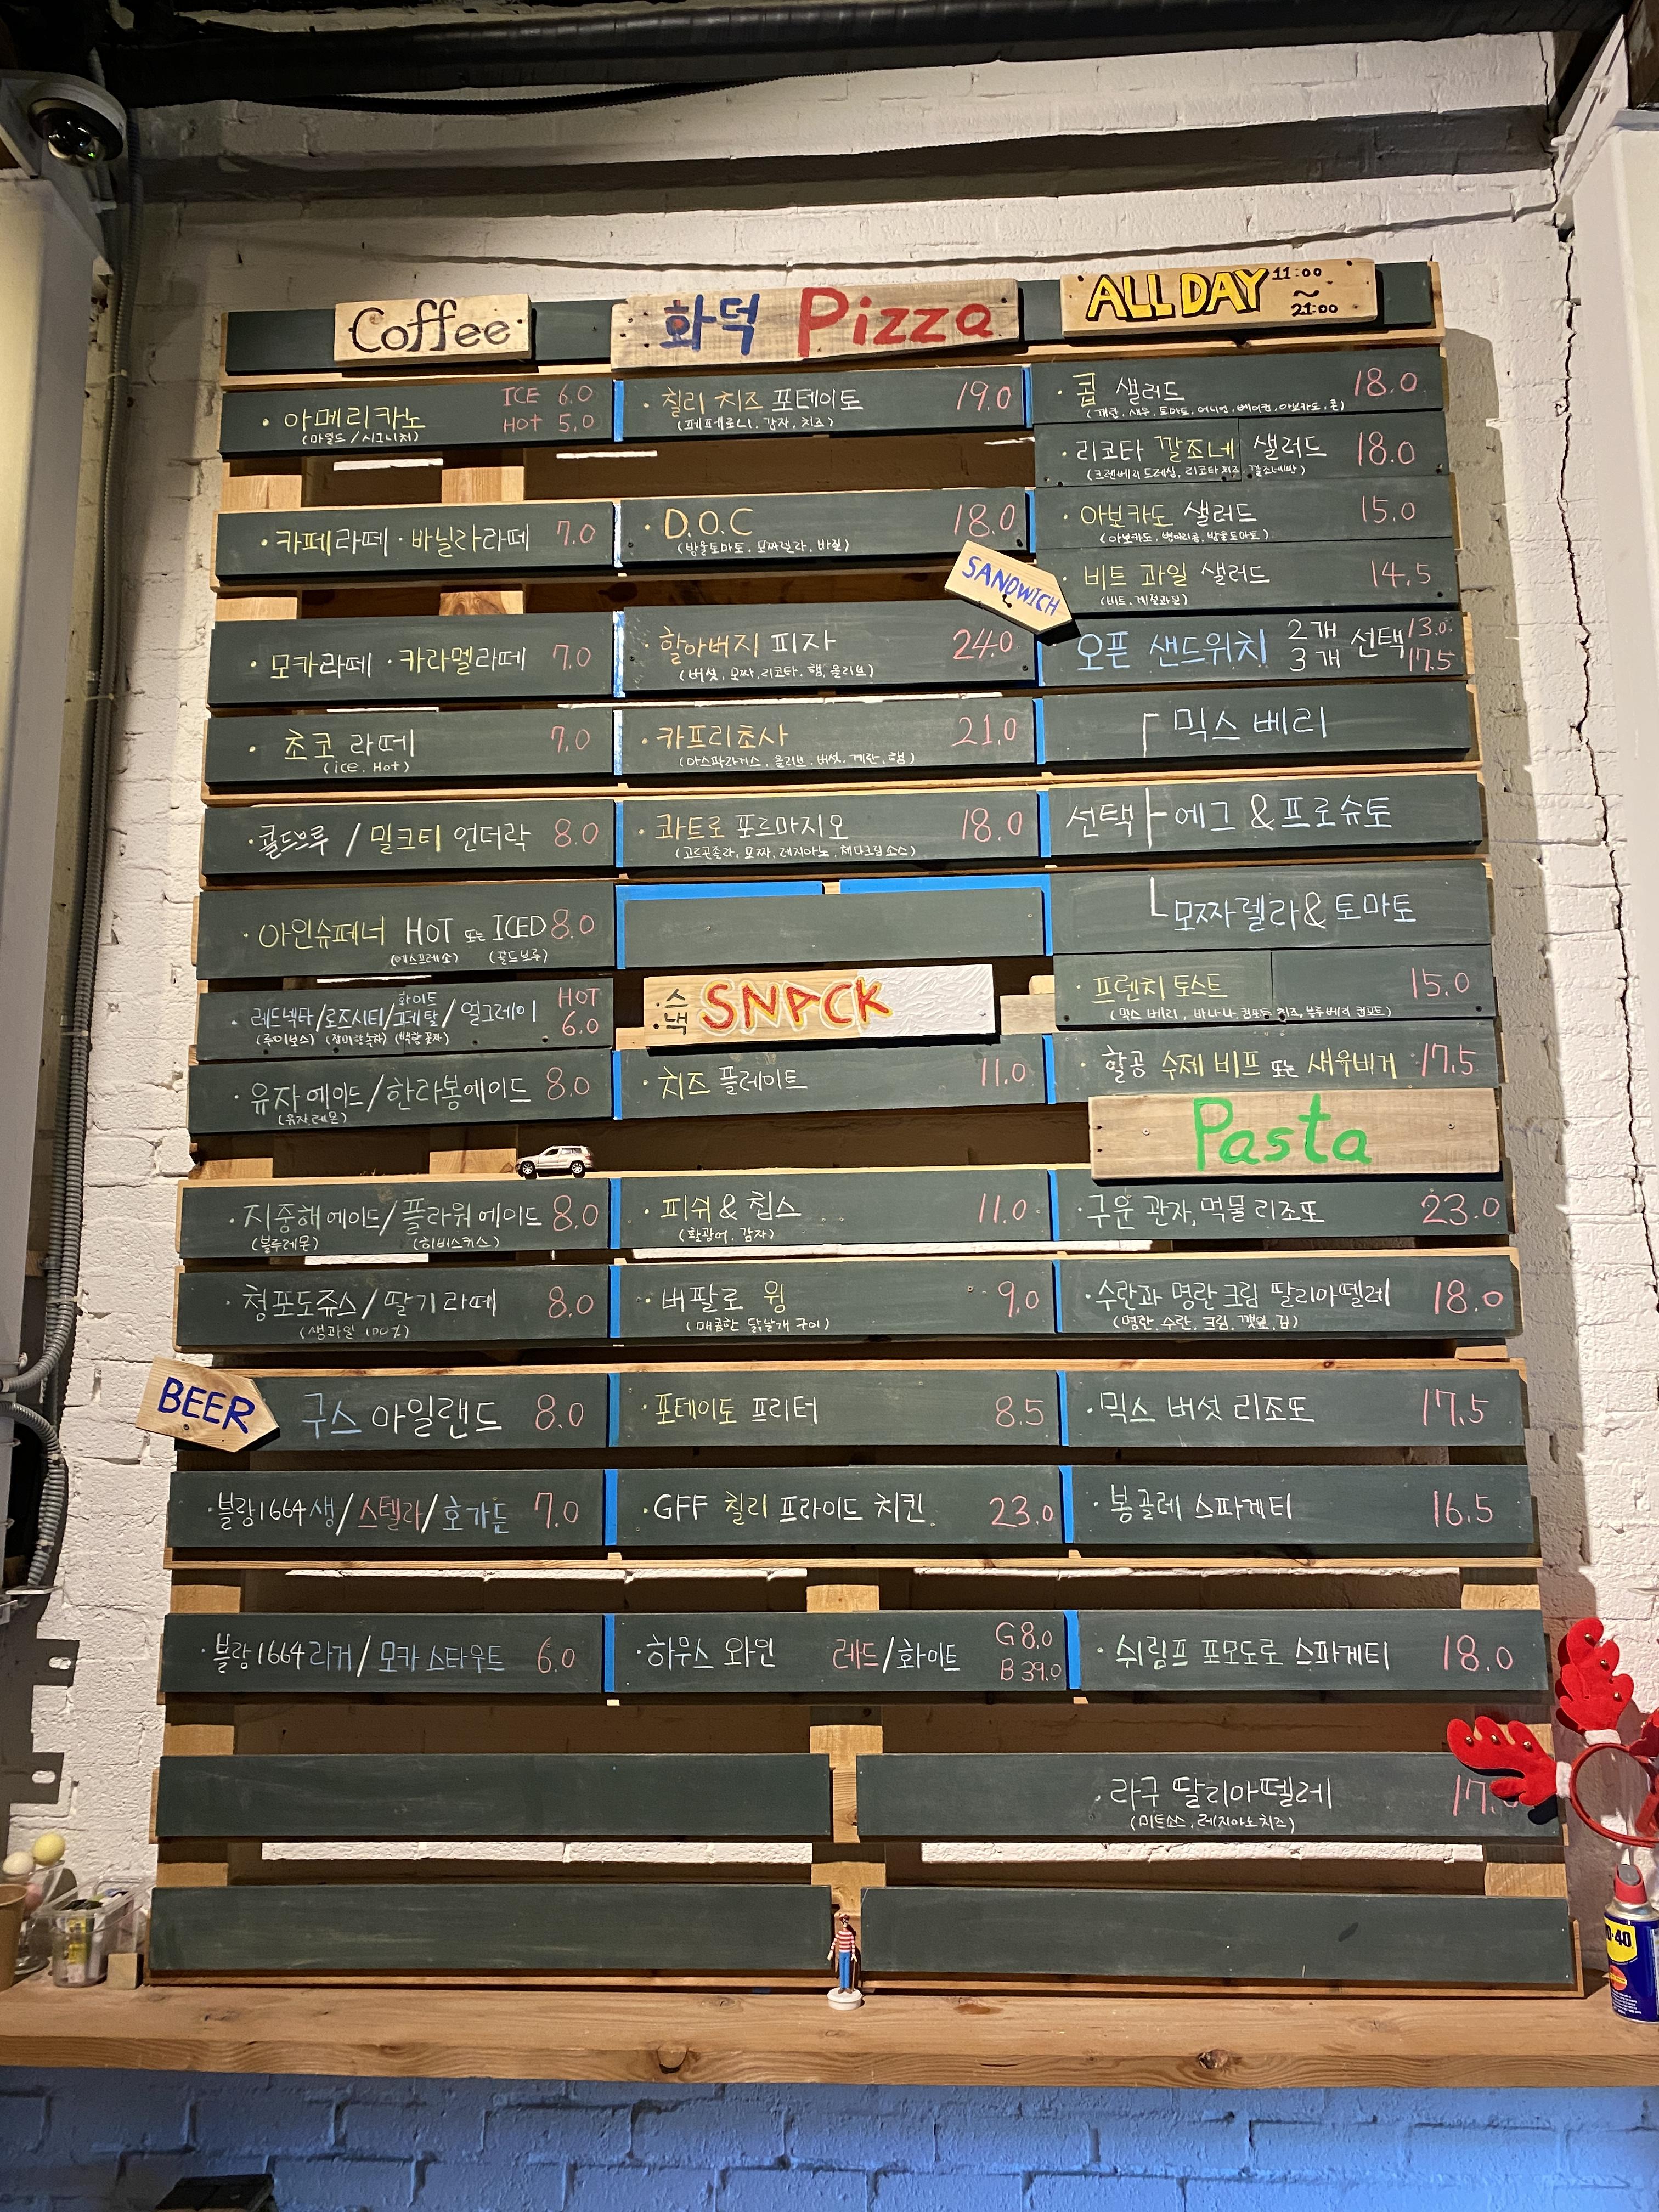 Coffee
· 아메리카노 ICE 6.0
HOT 5.0
(마일드 / 시그니처)
· 카페라떼 · 바닐라라떼 7.0
· 모카라떼 · 카라멜라떼 7.0
· 초코 라떼 7.0
(ice. Hot)
· 콜드브루 / 밀크티 언더락 8.0
· 아인슈페너 HOT 또는 ICED 8.0
(에스프레소) (콜드브루)
· 레드넥타/로즈시티/화이트 그레탈/얼그레이 HOT 6.0
(루이보스) (장미란녹차) (백향 꽃차)
· 유자에이드/한라봉에이드 8.0
(유자,레몬)
· 지중해에이드/플라워에이드 8.0
(블루레몬) (히비스커스)
· 청포도쥬스/딸기라떼 8.0
(생과일 100%)
BEER
구스 아일랜드 8.0
· 블랑1664생/스텔라/호가든 7.0
· 블랑1664라거/모카 스타우트 6.0
화덕 Pizza
· 칠리 치즈 포테이토 19.0
(페페로니, 감자, 치즈)
· D.O.C 18.0
(방울토마토, 모짜렐라, 바질)
· 할아버지 피자 24.0
(버섯, 모짜, 리코타, 햄, 올리브)
· 카프리초사 21.0
(아스파라거스, 올리브, 버섯, 계란, 햄)
· 콰트로 포르마지오 18.0
(고르곤졸라, 모짜, 레지아노, 체다크림소스)
스낵 SNACK
· 치즈 플레이트 11.0
· 피쉬 & 칩스 11.0
(활광어, 감자)
· 버팔로 윙 9.0
(매콤한 닭날개 구이)
· 포테이토 프리터 8.5
· GFF 칠리 프라이드 치킨 23.0
· 하우스 와인 레드/화이트 G 8.0
B 39.0
ALL DAY 11:00
~
21:00
· 콥 샐러드 18.0
(계란, 새우, 토마토, 어니언, 베이컨, 아보카도, 콘)
· 리코타 깔조네 샐러드 18.0
(크렌베리드레싱, 리코타치즈, 깔조네빵)
· 아보카도 샐러드 15.0
(아보카도, 병아리콩, 방울토마토)
· 비트 과일 샐러드 14.5
(비트, 계절과일)
SANDWICH
오픈 샌드위치 2개 선택 13.0
3개 17.5
믹스 베리
선택 에그 & 프로슈토
모짜렐라 & 토마토
· 프렌치 토스트 15.0
(믹스 베리, 바나나 컴포트 치즈, 블루베리 컴포트)
· 할공 수제 비프 또는 새우버거 17.5
Pasta
· 구운 관자, 먹물 리조또 23.0
· 수란과 명란 크림 딸리아뗄레 18.0
(명란, 수란, 크림, 깻잎, 김)
· 믹스 버섯 리조또 17.5
· 봉골레 스파게티 16.5
· 쉬림프 포모도로 스파게티 18.0
· 라구 딸리아뗄레 17.
(미트쏘스, 레지아노치즈)